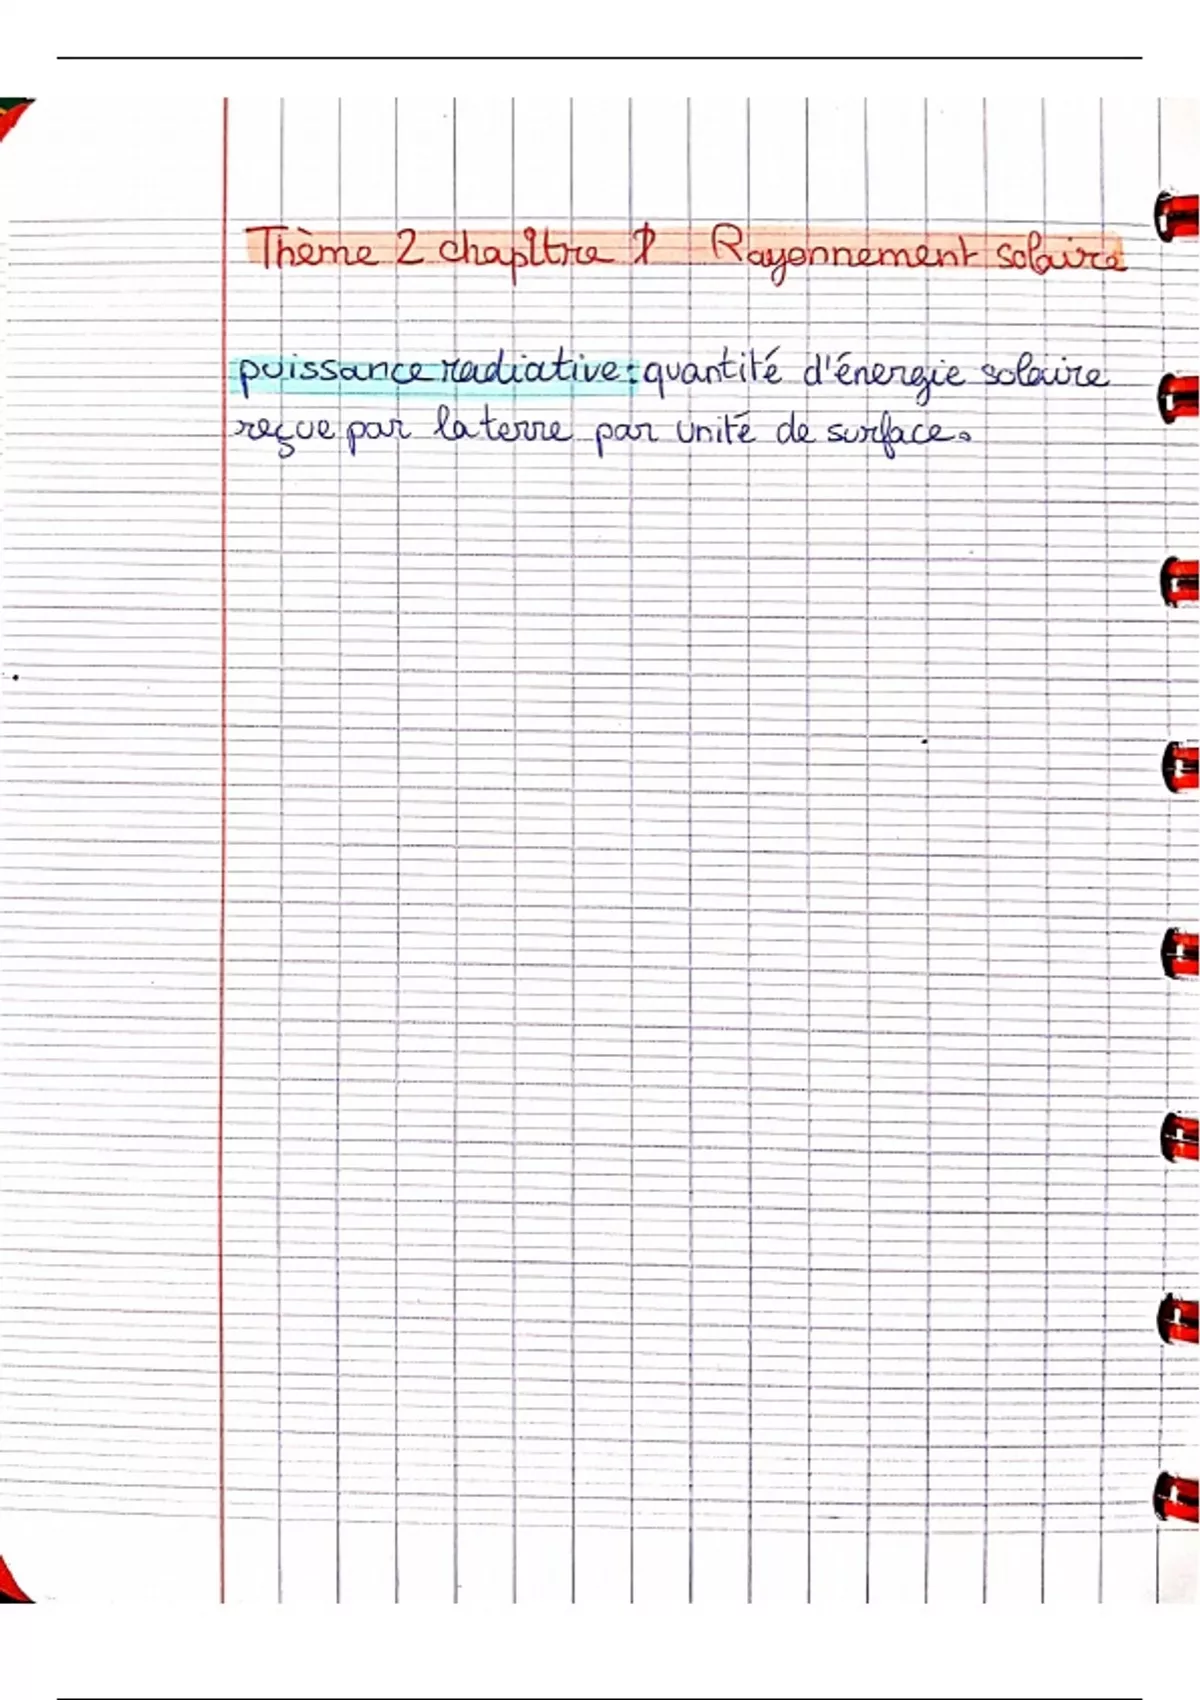 Thème 2 chapître 1 Rayonnement solaire
puissance radiative : quantité d'énergie solaire
reçue par la terre par unité de surface.